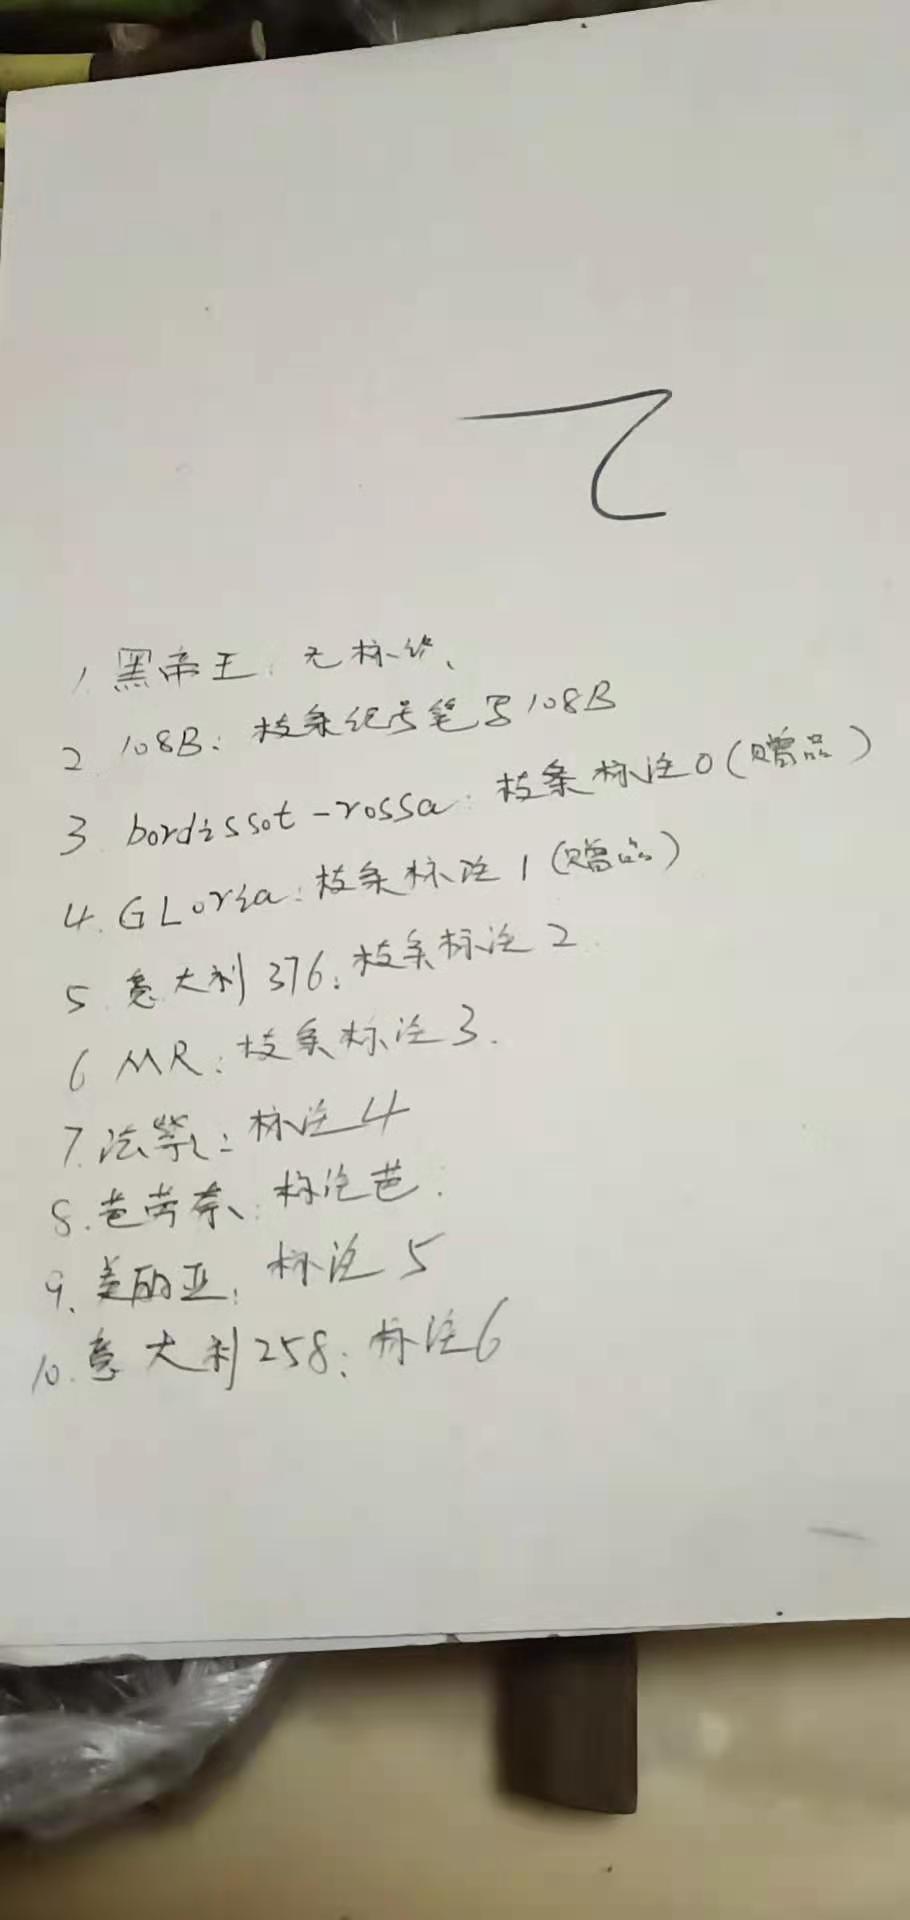 1. 黑帝王: 无标签、
2 108B: 枝条纪号笔写108B
3 bordissot-rossa: 枝条标注0(赠品)
4. GLoria: 枝条标注1(赠品)
5. 意大利376: 枝条标注2.
6 MR: 枝条标注3.
7. 法紫: 标注4
8. 芭劳奈: 标注芭.
9、美丽亚: 标注5
10. 意大利258: 标注6